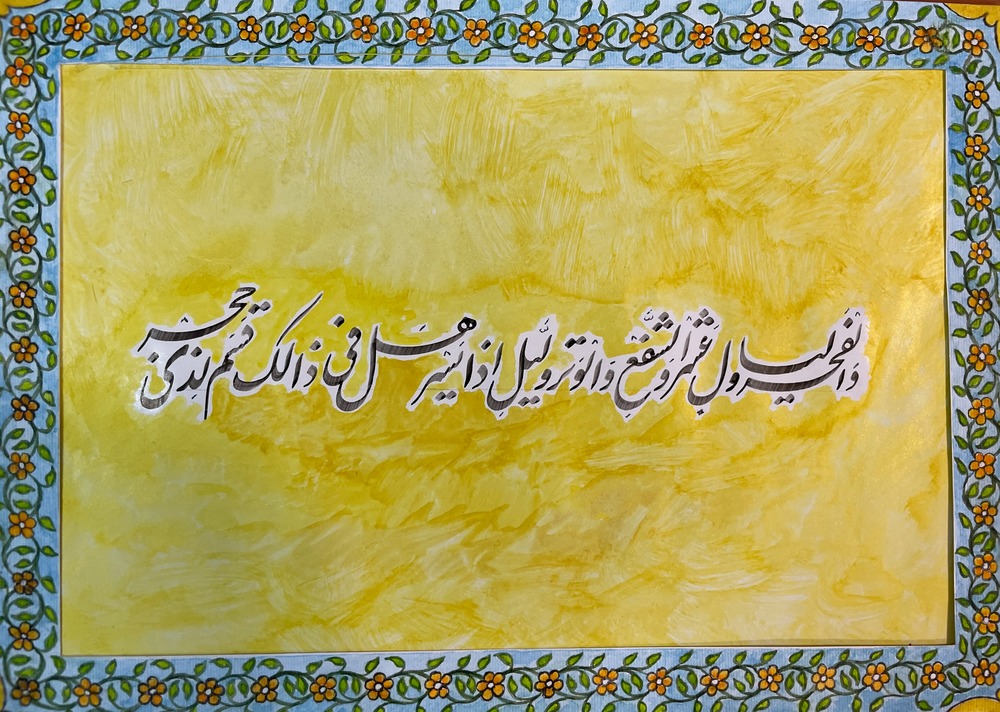 والفجر ولیال عشر والشفع والوتر ولیل اذا یسر هل فی ذالک قسم لذی حجر